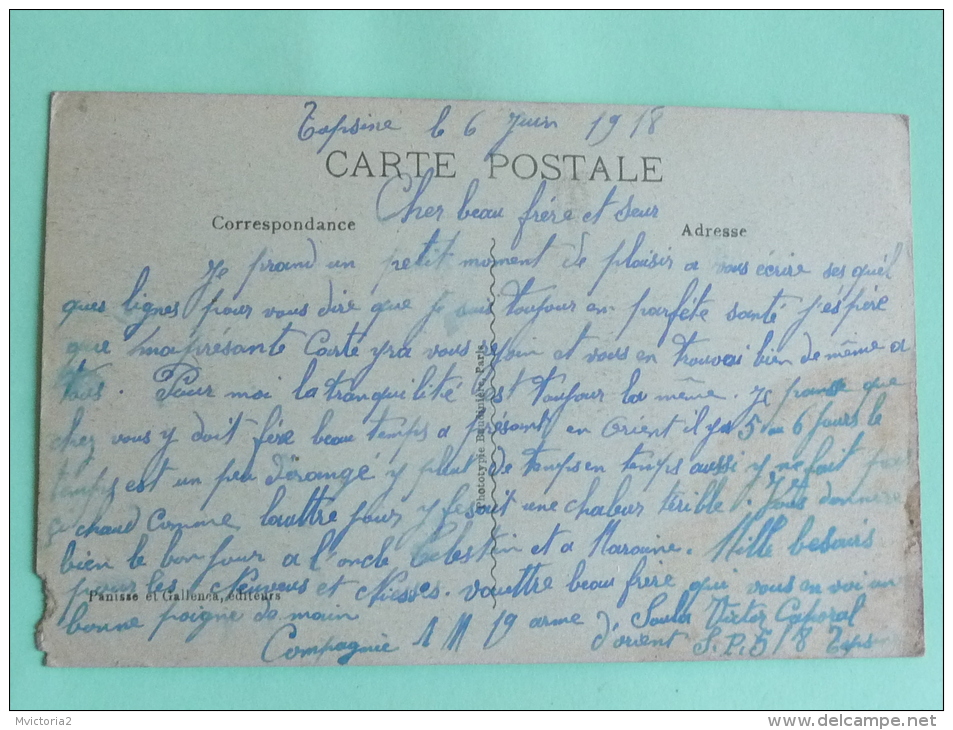 Topsine le 6 Juin 1918
CARTE POSTALE
Cher beau frére et seur
Correspondance
Adresse
Je prand un petit moment de plaisir a vous écrire ses quél
ques lignes pour vous dire que je suis toujour en parféte santé j'espére
que ma présante Carte yra vous and et vous en trouvai bien de même a
tous. Pour moi la tranquilité est toujour la même. Je panse que
chez vous y doit fére beau temps a présant en Orient il ya 5 ou 6 jours le
temps est un peu dérangé y pleut de temps en temps aussi y ne fait pas
si chaud comme lauttre jour y fesait une chaleur térible. Vous donnere
bien le bonjour a l'oncle Celestin et a Maraine. Mille besairs
pour les Neuveus et Niesses. vauttre beau frére qui vous en voi un
Panisse et Gallenca, éditeurs
bonne poigne de main
Soula Victor Caporal
Compagnie 1 M 19 arme d'orient S.P. 518
Phototypie Baudinière, Paris
Mvictoria2
www.delcampe.net